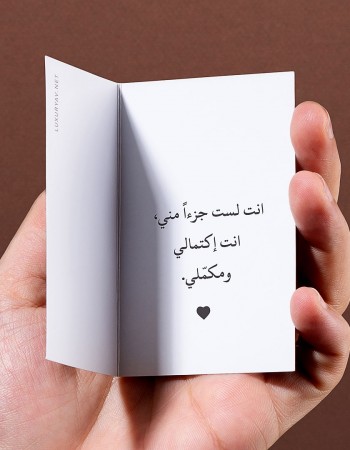 انت لست جزءاً مني،
انت إكتمالي
ومكمّلي.